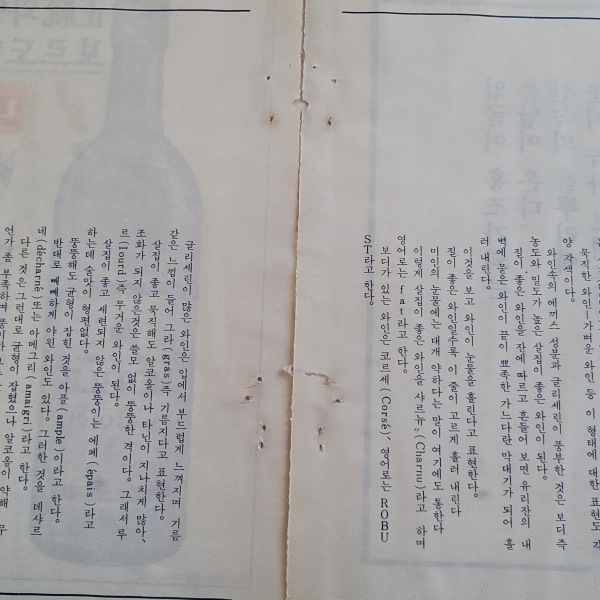 묵직한 와인—가벼운 와인 등 이 형태에 대한 표현도 각
양 각색이다.
와인속의 에끼스 성분과 글리세린이 풍부한 것은 보디 즉
농도와 밀도가 높은 살집이 좋은 와인이 된다.
질이 좋은 와인을 잔에 따르고 흔들어 보면 유리잔의 내
벽에 묻은 와인의 끝이 뾰족한 가느다란 막대기가 되어 흘
러 내린다.
이것을 보고 와인이 눈물을 흘린다고 표현한다.
질이 좋은 와인일수록 이 줄이 고르게 흘러 내린다
미인의 눈물에는 대개 약하다는 말이 여기에도 통한다
이렇게 살집이 좋은 와인을 샤르뉴"(Charnu)라고 하며
영어로는 fat라고 한다.
보디가 있는 와인은 코르세(Corsé)、영어로는 ROBU
ST라고 한다.
글리세린이 많은 와인은 입에서 부드럽게 느껴지며 기름
같은 느낌이 들어 그라(gras)즉 기름지다고 표현한다.
살집이 좋고 묵직해도 알코올이나 타닌이 지나치게 많아、
조화가 되지 않은것은 쓸모 없이 뚱뚱한 격이다。그래서 루
르(lourd)즉 무거운 와인이 된다.
살집이 좋고 세련되지 않은 뚱뚱이는 에페(épais)라고
하는데 술맛이 형편없다.
뚱뚱해도 균형이 잡힌 것을 아플(ample)이라고 한다.
반대로 빼빼하게 야윈 와인도 있다. 그러한 것을 데샤르
네(décharné)또는 아메그리(amaigri)라고 한다.
다른 것은 그런대로 균형이 잡혔으나 알코올이 약해 무
언가 좀 부족하며